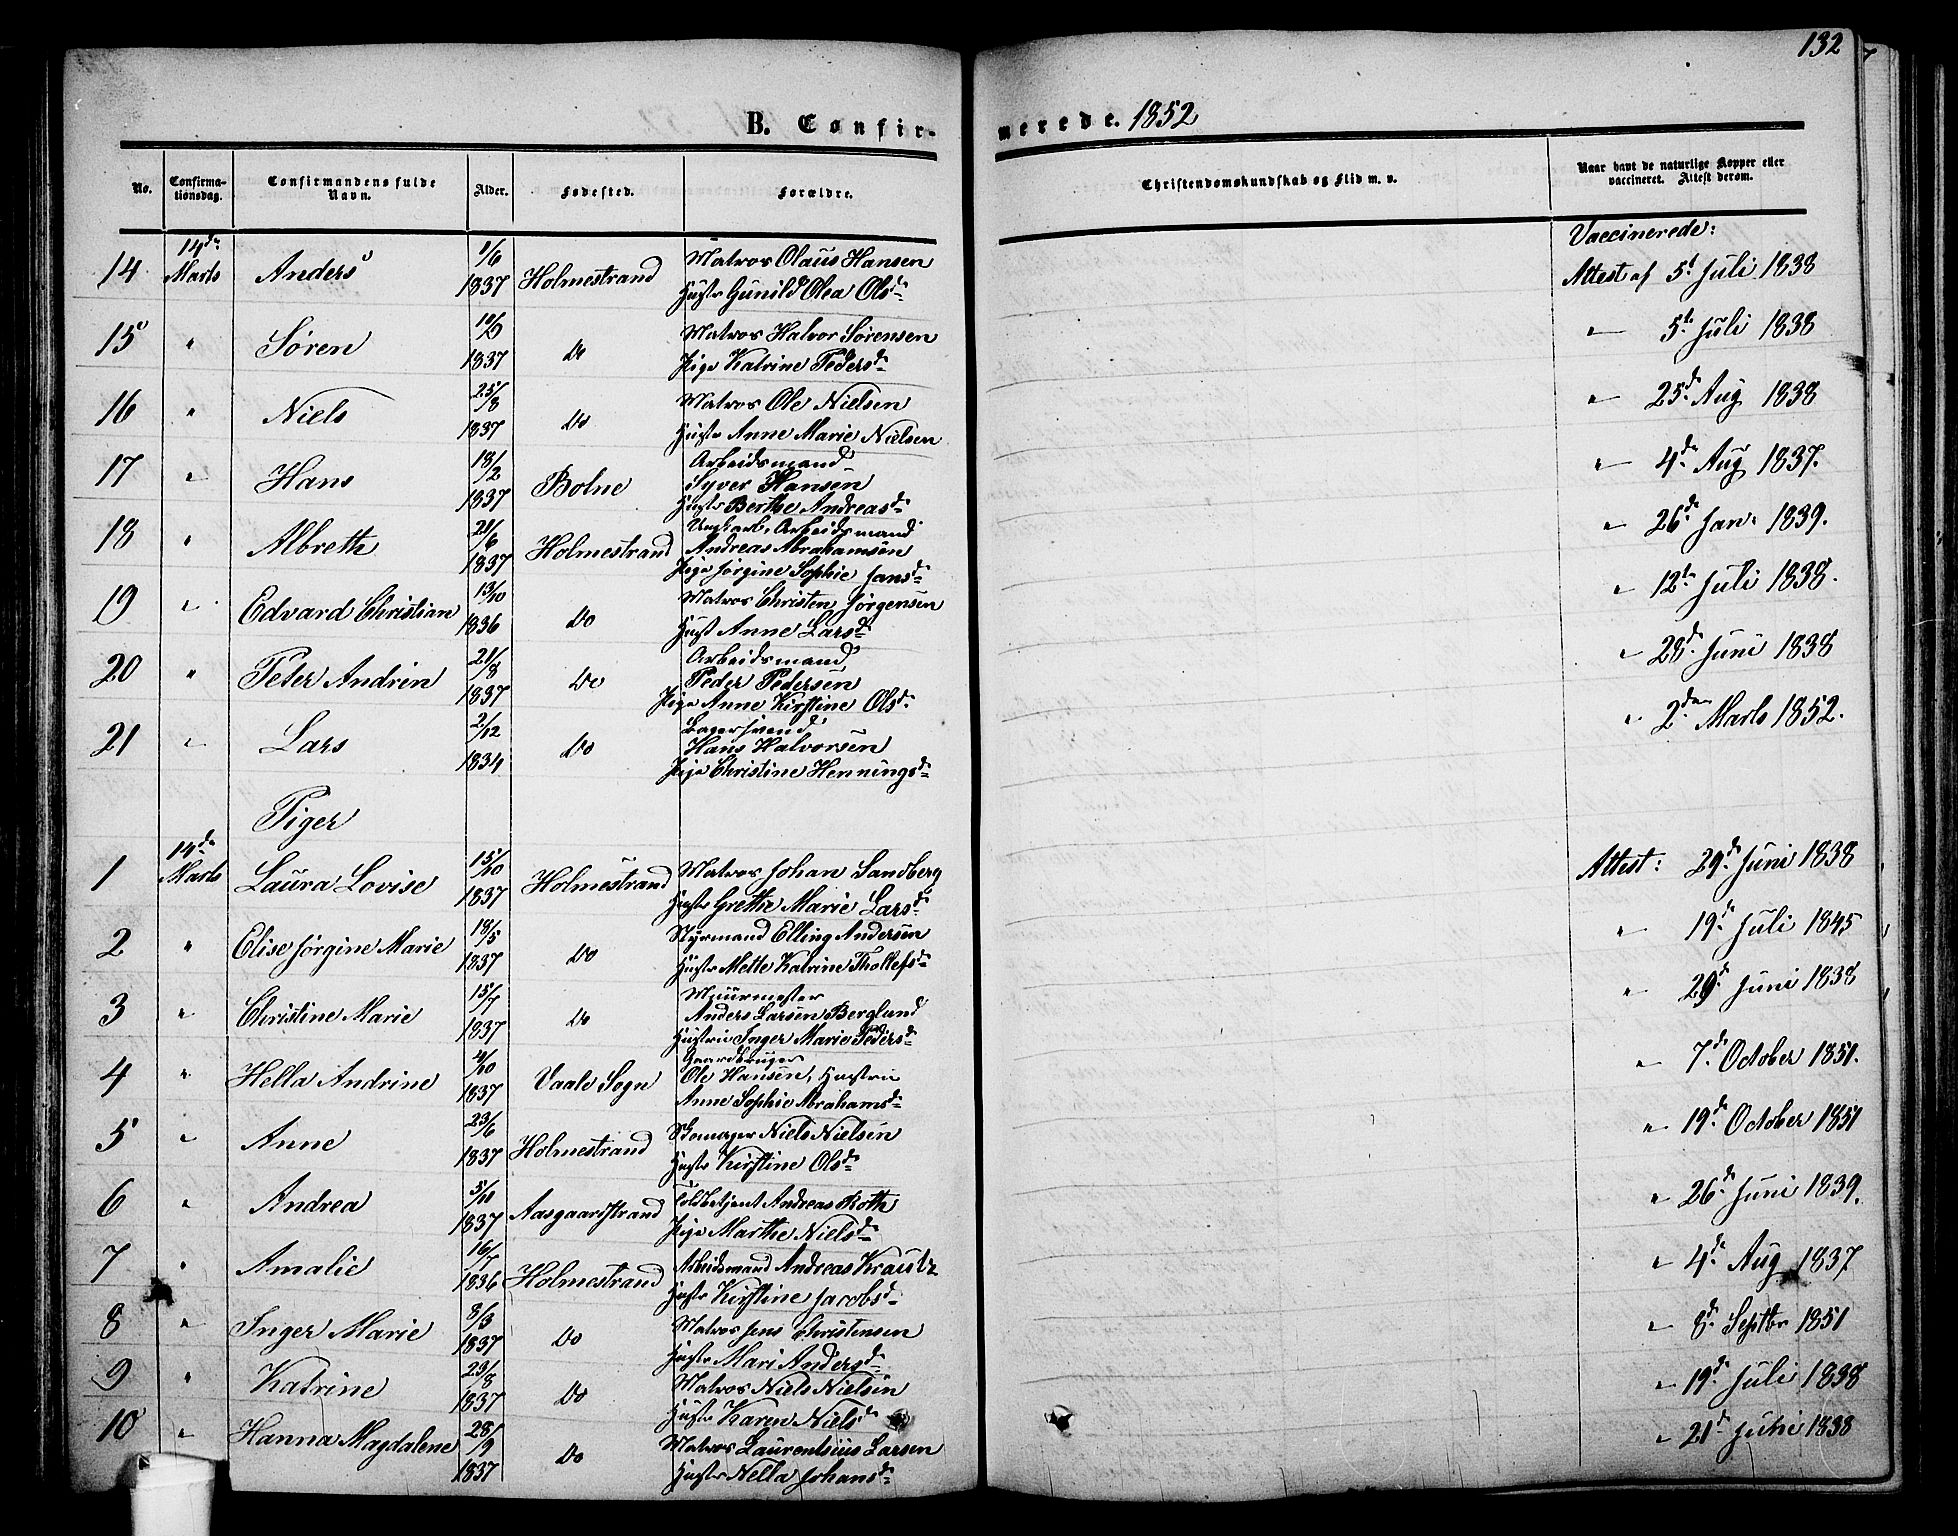 132
B. Confirmerede. 1852
No. Confirmationsdag. Confirmandens fulde Navn. Alder. Fødested. Forældre. Christendomskundskab og Flid m. v. Naar havt de naturlige Kopper eller vaccineret. Attest derom.
Vaccinerede:
14 14de Marts Anders 1/6 1837 Holmestrand Matros Olaus Hansen Hustr Gunild Olea Olsd. Attest af 5t Juli 1838
15 " Søren 10/9 1837 Do Matros Halvor Sørensen Pige Katrine Pedersd. " 5te Juli 1838
16 " Niels 25/8 1837 Do Matros Ole Nielsen Hustr Anne Marie Nielsen " 25de Aug 1838
17 " Hans 18/2 1837 Botne Arbeidsmand Syver Hansen Hustr Berthe Andreasd. " 4de Aug 1837.
18 " Albreth 21/6 1837 Holmestrand Ungkarl, Arbeidsmand Andreas Abrahamsen Pige Jørgine Sophie Jansd. " 26de Jan. 1839.
19 " Edvard Christian 13/10 1836 Do Matros Christen Jørgensen Hust Anne Larsd. " 12te Juli 1838.
20 " Peter Andrin 21/8 1837 Do Arbeidsmand Peder Pedersen Pige Anne Kirstine Olsd. " 28de Juni 1838
21 " Lars 2/12 1834 Do Bagersvend Hans Halvorsen Pige Christine Henningsd. " 2den Marts 1852.
Piger
1 14de Marts Laura Lovise 15/10 1837 Holmestrand Matros Johan Sandberg Hustr Grethe Marie Larsd. Attest: 29de Juni 1838
2 " Elise Jørgine Marie 18/5 1837 Do Styrmand Elling Andersen Hustr Mette Katrine Thollefsd. " 19de Juli 1845
3 " Christine Marie 15/7 1837 Do Muurmester Anders Larsen Berglund Hustru Inger Marie Pedersd. " 29de Juni 1838
4 " Hella Andrine 4/10 1837 Vaale Sogn Gaardbruger Ole Hansen, Hustru Anne Sophie Abrahamsd. " 7de October 1851.
5 " Anne 23/6 1837 Holmestrand Skomager Niels Nielsen Hustr Kirstine Olsd. " 19de October 1851
6 " Andrea 5/10 1837 Aasgaardstrand Toldbetjent Andreas Roth Pige Marthe Nielsd. " 26de Juni 1839.
7 " Amalie 16/7 1836 Holmestrand Arbeidsmand Andreas Krautz Hustr Kirstine Jacobsd. " 4de Aug 1837
8 " Inger Marie 8/3 1837 Do Matros Jens Christensen Hustr Mari Andersd. " 8de Septbr 1851
9 " Katrine 23/8 1837 Do Matros Niels Nielsen Hustr Karen Nielsd. " 19de Juli 1838
10 " Hanna Magdalene 28/9 1837 Do Matros Laurentsius Larsen Hustr Nella Johansd. " 21de Juni 1838